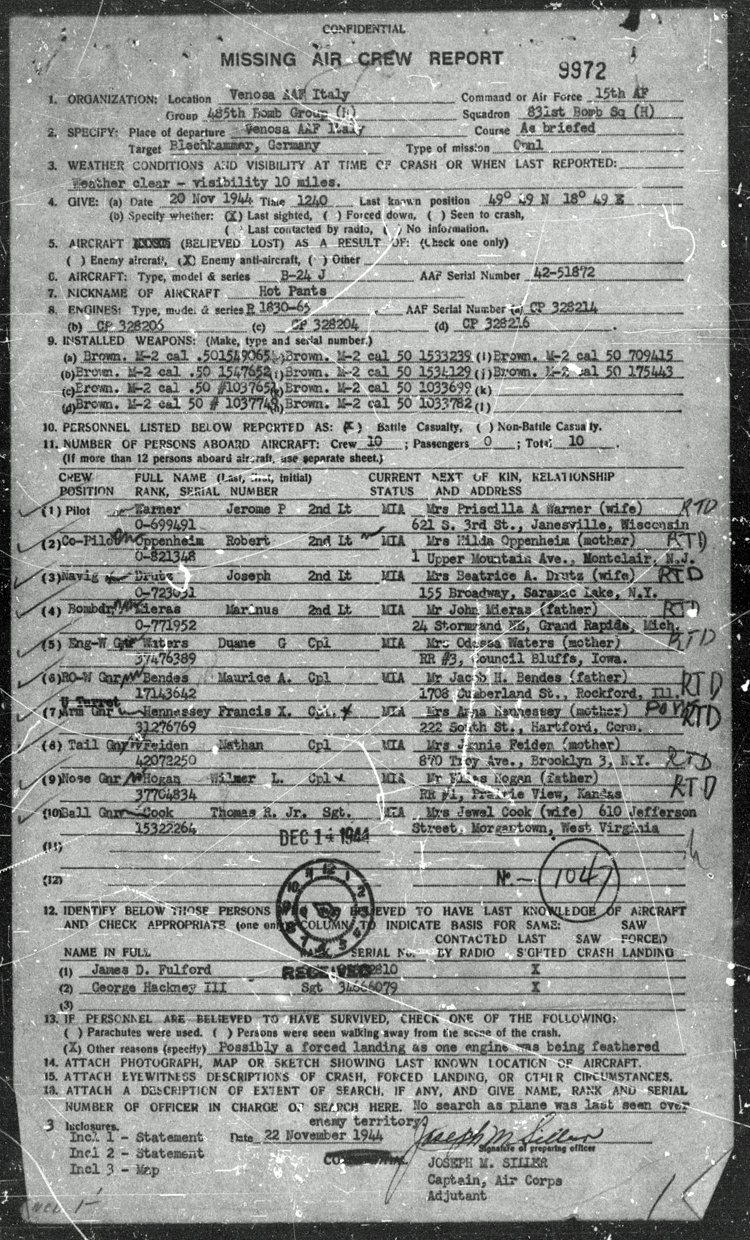 CONFIDENTIAL
MISSING AIR CREW REPORT
9972
1. ORGANIZATION: Location Venosa AAF Italy Command or Air Force 15th AF
Group 485th Bomb Group (H) Squadron 831st Bomb Sq (H)
2. SPECIFY: Place of departure Venosa AAF Italy Course As briefed
Target Blechhammer, Germany Type of mission Opnl
3. WEATHER CONDITIONS AND VISIBILITY AT TIME OF CRASH OR WHEN LAST REPORTED:
Weather clear - visibility 10 miles.
4. GIVE: (a) Date 20 Nov 1944 Time 1240 Last known position 49° 49 N 18° 49 E
(b) Specify whether: (X) Last sighted, ( ) Forced down, ( ) Seen to crash,
( ) Last contacted by radio, ( ) No information.
5. AIRCRAFT (BELIEVED LOST) AS A RESULT OF: (Check one only)
( ) Enemy aircraft, (X) Enemy anti-aircraft, ( ) Other
6. AIRCRAFT: Type, model & series B-24 J AAF Serial Number 42-51872
7. NICKNAME OF AIRCRAFT Hot Pants
8. ENGINES: Type, model & series R 1830-65 AAF Serial Number (a) CP 328214
(b) CP 328205 (c) CP 328204 (d) CP 328216
9. INSTALLED WEAPONS: (Make, type and serial number.)
(a) Brown. M-2 cal .50 1549065 Brown. M-2 cal 50 1533239 (i) Brown. M-2 cal 50 709415
(b) Brown. M-2 cal .50 1547652 Brown. M-2 cal 50 1534129 (j) Brown. M-2 cal 50 175443
(c) Brown. M-2 cal .50 #1037651 Brown. M-2 cal 50 1033699 (k)
(d) Brown. M-2 cal 50 # 1037748 Brown. M-2 cal 50 1033782 (l)
10. PERSONNEL LISTED BELOW REPORTED AS: (X) Battle Casualty, ( ) Non-Battle Casualty.
11. NUMBER OF PERSONS ABOARD AIRCRAFT: Crew 10 ; Passengers 0 ; Total 10
(If more than 12 persons aboard aircraft, use separate sheet.)
CREW FULL NAME (Last, first, initial) CURRENT NEXT OF KIN, RELATIONSHIP
POSITION RANK, SERIAL NUMBER STATUS AND ADDRESS
(1) Pilot Warner Jerome P 2nd Lt MIA Mrs Priscilla A Warner (wife) RTD
0-699491 621 S. 3rd St., Janesville, Wisconsin
(2) Co-Pilot Oppenheim Robert 2nd Lt MIA Mrs Hilda Oppenheim (mother) RTD
0-821348 1 Upper Mountain Ave., Montclair, N.J.
(3) Navig Drutz Joseph 2nd Lt MIA Mrs Beatrice A. Drutz (wife) RTD
0-723051 155 Broadway, Saranac Lake, N.Y.
(4) Bombdr Mieras Marinus 2nd Lt MIA Mr John Mieras (father) RTD
0-771952 24 Stormzand NE, Grand Rapids, Mich.
(5) Eng-W Gnr Waters Duane G Cpl MIA Mrs Odessa Waters (mother) RTD
37476389 RR #3, Council Bluffs, Iowa.
(6) RO-W Gnr Bendes Maurice A. Cpl MIA Mr Jacob H. Bendes (father) RTD
17143642 1708 Cumberland St., Rockford, Ill.
U Turret
(7) Arm Gnr Hennessey Francis X. Cpl. MIA Mrs Anna Hennessey (mother) POW RTD
31276769 222 South St., Hartford, Conn.
(8) Tail Gnr Feiden Nathan Cpl MIA Mrs Jennie Feiden (mother)
42073250 870 Troy Ave., Brooklyn 3, N.Y. RTD
(9) Nose Gnr Hogan Wilmer L. Cpl MIA Mr Elias Hogan (father) RTD
37704834 RR #1, Prairie View, Kansas
(10) Ball Gnr Cook Thomas R. Jr. Sgt. MIA Mrs Jewel Cook (wife) 610 Jefferson
15322264 Street, Morgantown, West Virginia
(11) DEC 14 1944
(12) No. - 1047
12. IDENTIFY BELOW THOSE PERSONS BELIEVED TO HAVE LAST KNOWLEDGE OF AIRCRAFT
AND CHECK APPROPRIATE (one only) COLUMN TO INDICATE BASIS FOR SAME: SAW
CONTACTED LAST SAW FORCED
NAME IN FULL RANK SERIAL NO. BY RADIO SIGHTED CRASH LANDING
(1) James D. Fulford RECEIVED 2810 X
(2) George Hackney III Sgt 34666079 X
(3)
13. IF PERSONNEL ARE BELIEVED TO HAVE SURVIVED, CHECK ONE OF THE FOLLOWING:
( ) Parachutes were used. ( ) Persons were seen walking away from the scene of the crash.
(X) Other reasons (specify) Possibly a forced landing as one engine was being feathered
14. ATTACH PHOTOGRAPH, MAP OR SKETCH SHOWING LAST KNOWN LOCATION OF AIRCRAFT.
15. ATTACH EYEWITNESS DESCRIPTIONS OF CRASH, FORCED LANDING, OR OTHER CIRCUMSTANCES.
16. ATTACH A DESCRIPTION OF EXTENT OF SEARCH, IF ANY, AND GIVE NAME, RANK AND SERIAL
NUMBER OF OFFICER IN CHARGE OF SEARCH HERE. No search as plane was last seen over
enemy territory.
3 Inclosures.
Incl 1 - Statement Date 22 November 1944 Joseph M Siller
Incl 2 - Statement Signature of preparing officer
Incl 3 - Map JOSEPH M. SILLER
Captain, Air Corps
Adjutant